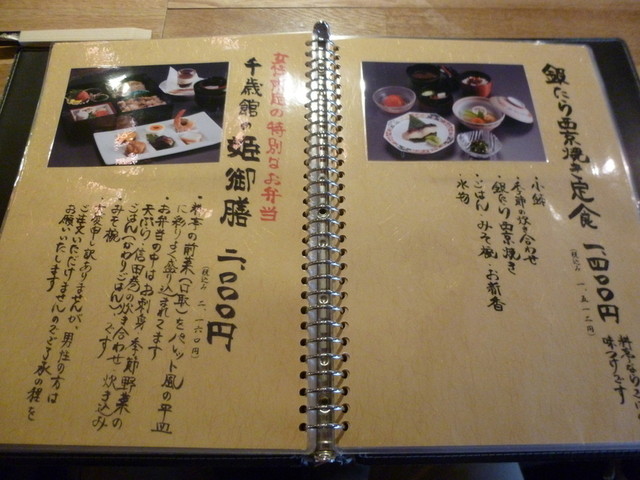 銀だら西京焼き定食 一、四〇〇円
(税込み 一、五一二円)
味つけです
・小鉢
・季節の炊き合わせ
・銀だら西京焼き
・ごはん みそ椀 お新香
・水物
女性限定の特別なお弁当
千歳館の姫御膳 二、〇〇〇円
(税込み 二、一六〇円)
の前菜(口取)をパレット風の平皿
に彩りよく盛り込まれてます
・お弁当の中はお刺身、季節野菜の
天ぷら、信田巻の炊き合わせ、炊き込み
ごはん(かわりごはん)です
・みそ椀
大変申し訳ありませんが、男性の方は
ご注文いただけませんのでご了承の程を
お願いいたします